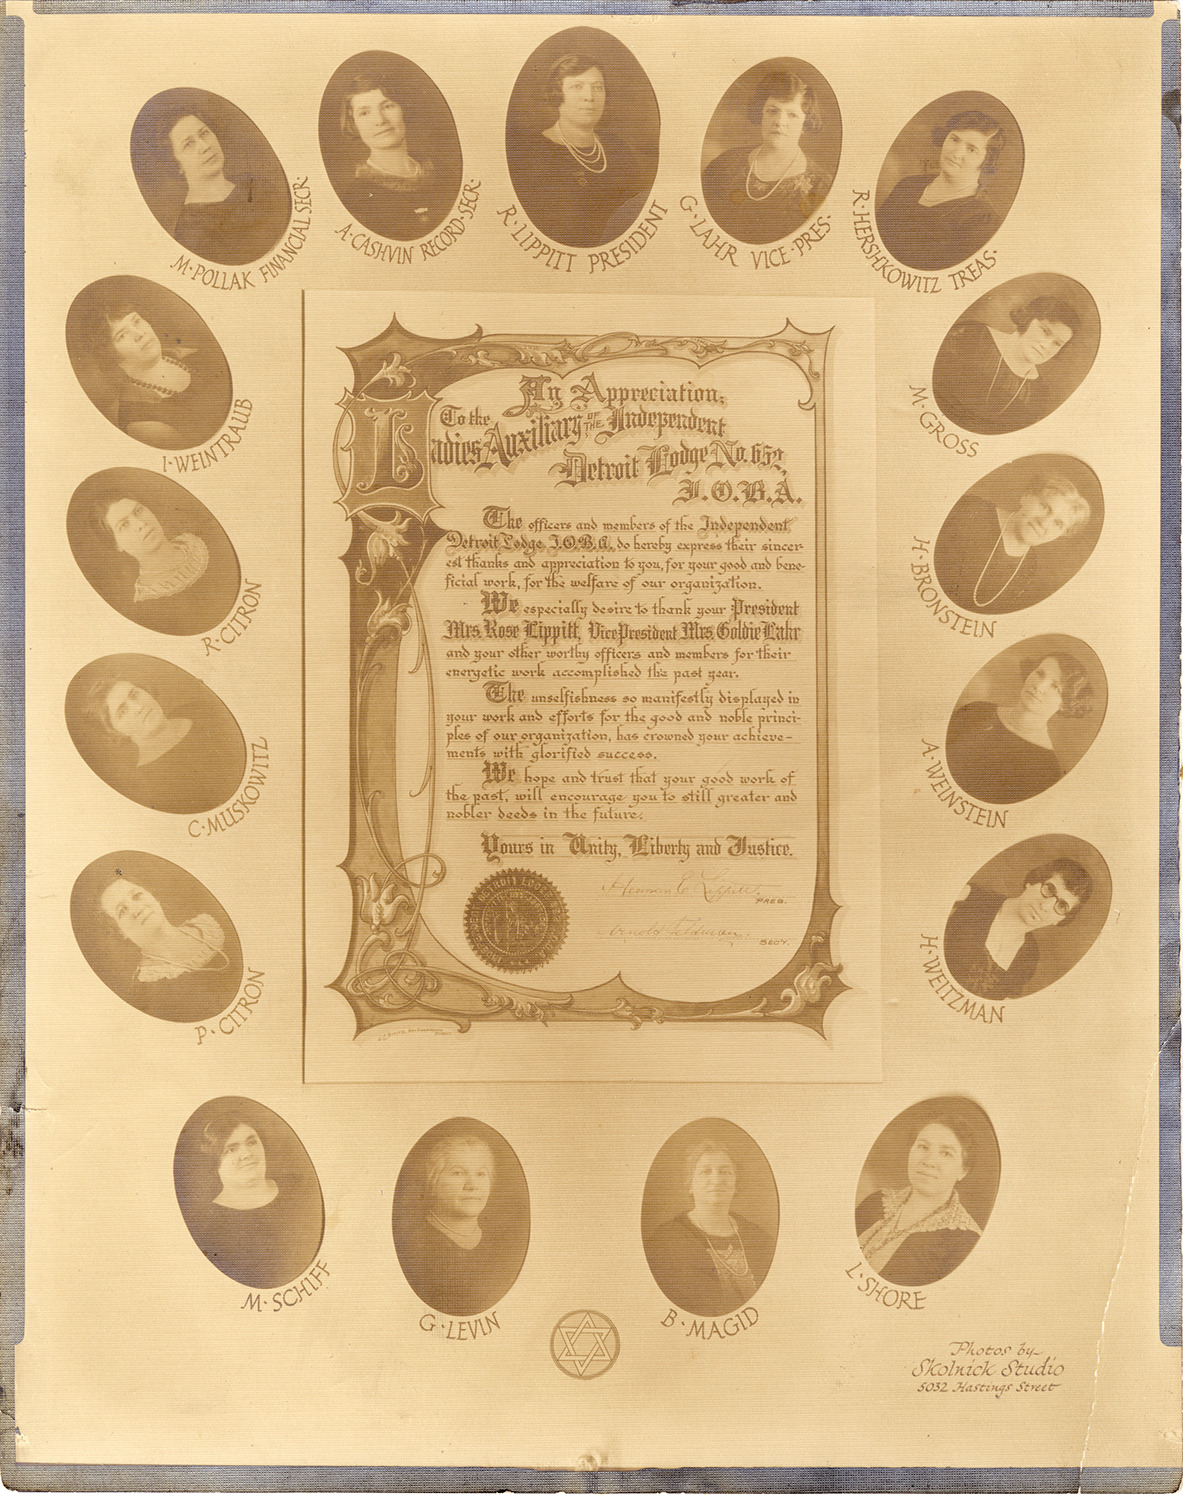 M·POLLAK FINANCIAL SECR·
A·CASHVIN RECORD·SECR·
R·LIPPITT PRESIDENT
G·LAHR VICE·PRES·
R·HERSHKOWITZ TREAS·
I·WEINTRAUB
M·GROSS
R·CITRON
H·BRONSTEIN
C·MUSKOWITZ
A·WEINSTEIN
P·CITRON
H·WEITZMAN
An Appreciation;
To the
Ladies Auxiliary OF THE Independent
Detroit Lodge No. 652,
I.O.B.A.
The officers and members of the Independent
Detroit Lodge, I.O.B.A. do hereby express their sincer-
est thanks and appreciation to you, for your good and bene-
ficial work, for the welfare of our organization.
We especially desire to thank your President
Mrs. Rose Lippitt, Vice President Mrs. Goldie Lahr
and your other worthy officers and members for their
energetic work accomplished the past year.
The unselfishness so manifestly displayed in
your work and efforts for the good and noble princi-
ples of our organization, has crowned your achieve-
ments with glorified success.
We hope and trust that your good work of
the past, will encourage you to still greater and
nobler deeds in the future.
Yours in Unity, Liberty and Justice.
Herman E Lippitt
PRES.
Arnold Feldman.
SECY.
M·SCHIFF
G·LEVIN
B·MAGID
L·SHORE
Photos by
Skolnick Studio
5032 Hastings Street